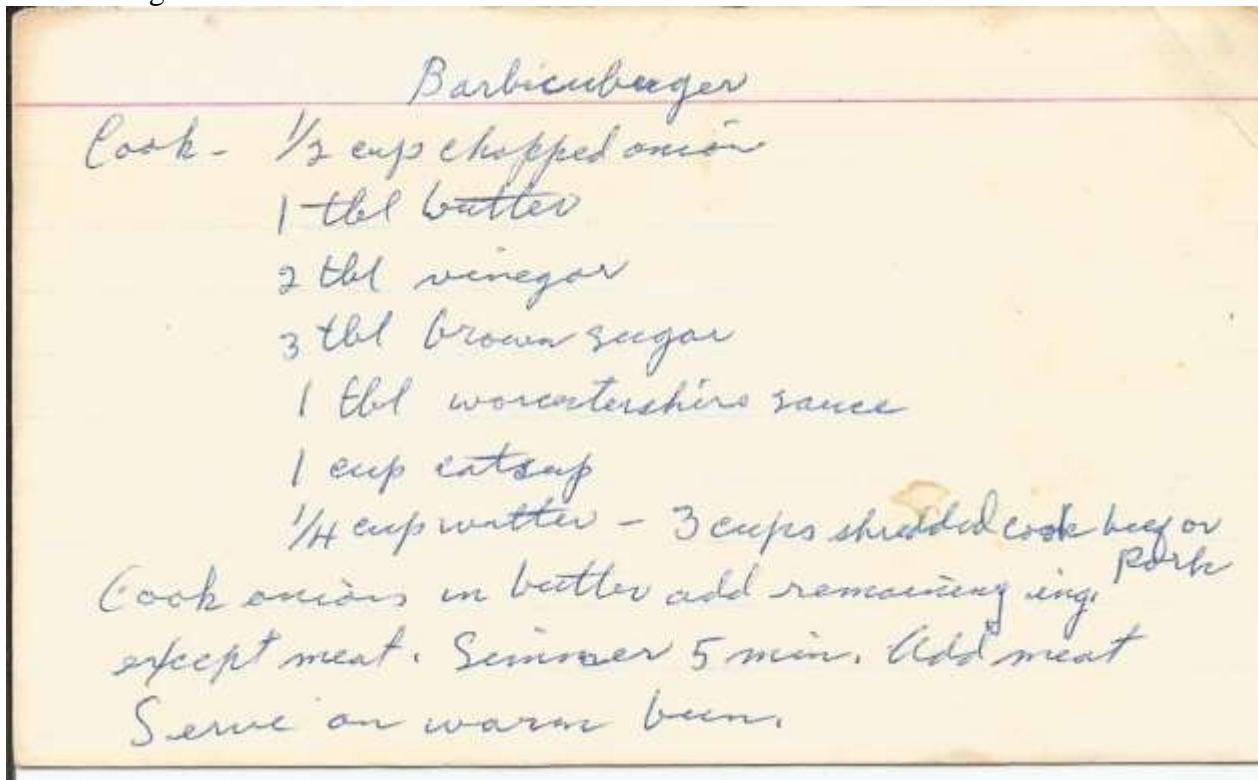 Barbicuburger
Cook - 1/2 cup chopped onion
1 tbl butter
2 tbl vinegar
3 tbl brown sugar
1 tbl worcestershire sauce
1 cup catsup
1/4 cup watter - 3 cups shredded cook beef or
pork
Cook onions in butter add remaining ing.
except meat. Simmer 5 min. Add meat
Serve on warm bun.